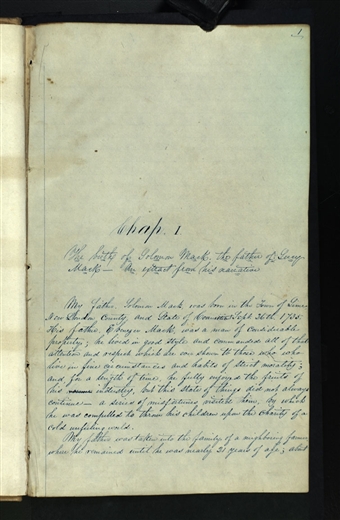 1
Chap. 1
The birth of Solomon Mack, the father of Lucy
Mack — An extract from his narrative
My father, Solomon Mack was born in the Town of Lime
New London County, and State of Sept 26th 1735.
His father, Ebenezer Mack, was a man of considerable
property; he lived in good style and commanded all of that
attention and respect which are ever shown to those who
live in fine circumstances and habits of Strict morality;
and for a length of time, he fully enjoyed the fruits of
his industry, but this state of things did not always
continue — a series of misfortunes visited him, by which
he was compelled to throw his children upon the charity of a
cold unfeeling world.
My father was taken into the family of a neighboring farmer
where he remained until he was nearly 21 years of age; about